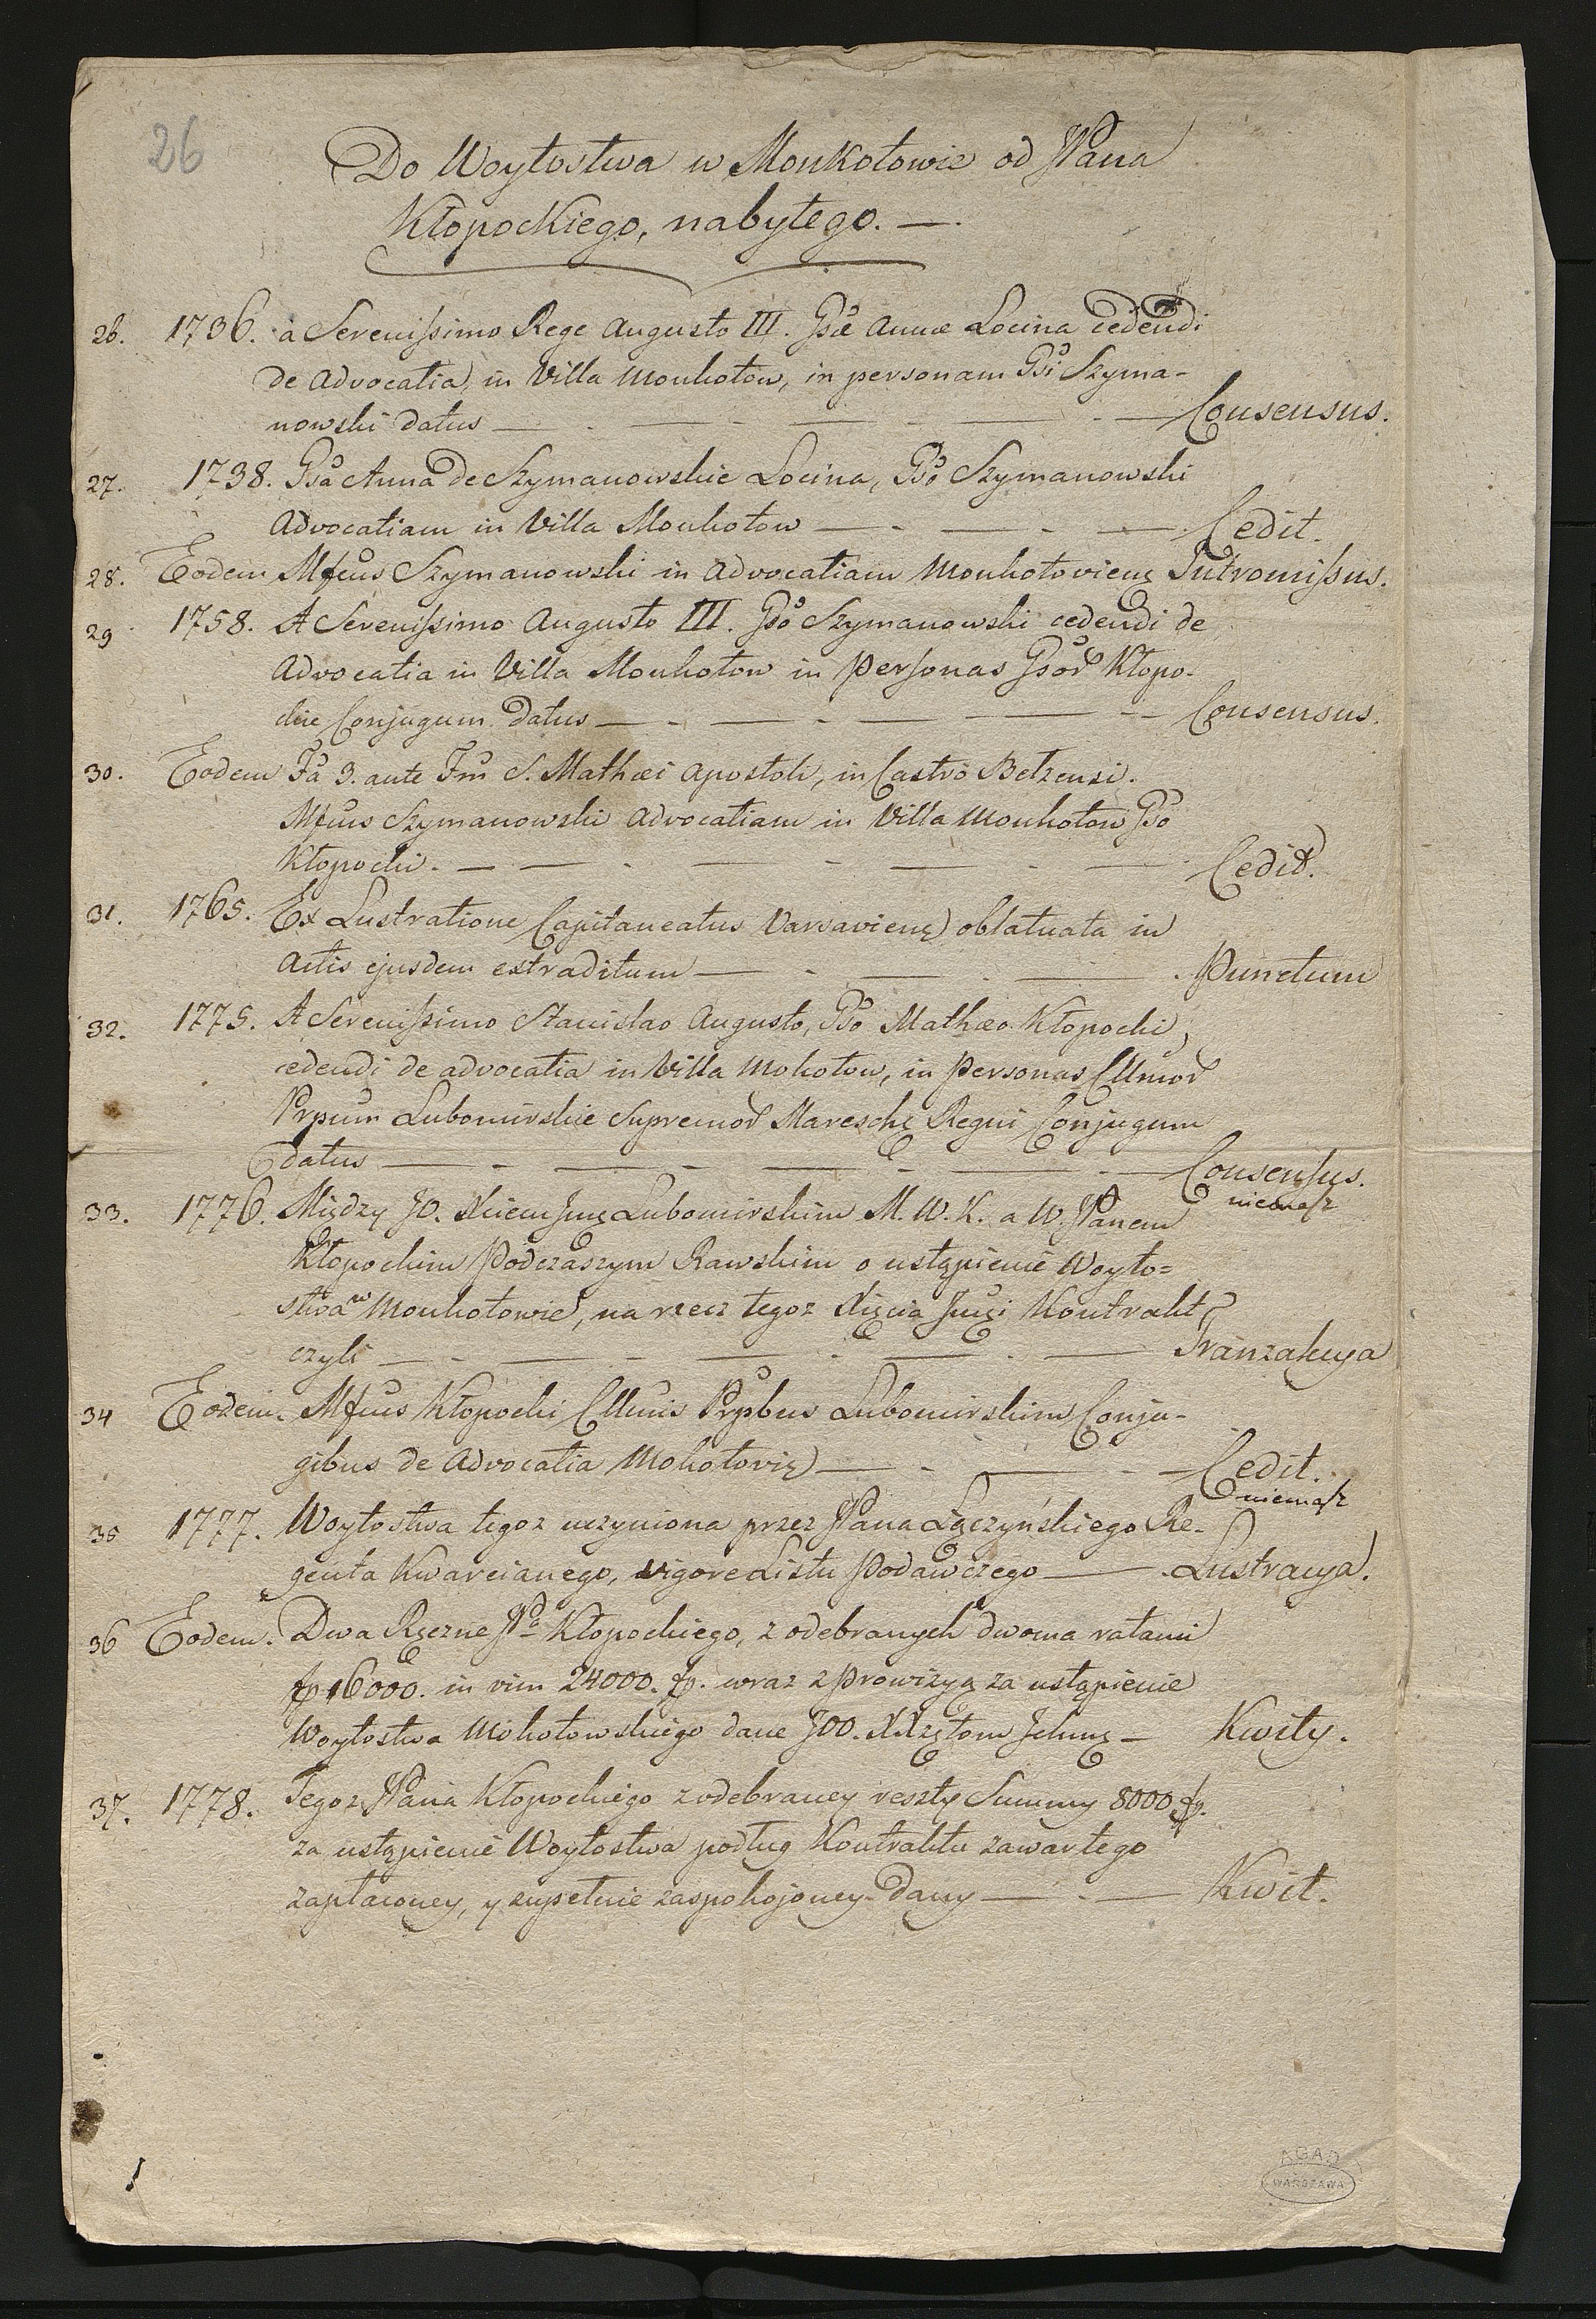 26
Do Woytostwa w Monkotowie od JPana
Kłopockiego, nabytego. —.
26. 1736. a Serenissimo Rege Augusto III. Gsæ Annæ Locina cedendi
de Advocatia, in Villa Monkotow, in personam Gsi Szyma-
nowski datus — Consensus.
27. 1738. Gsa Anna de Szymanowskie Locina, Gso Szymanowski
Advocatiam in Villa Monkotow — Cedit.
28. Eodem Mfcus Szymanowski in Advocatiam Monkotovienę Intromissus.
29 1758. A Serenissimo Augusto III. Gso Szymanowski cedendi de
Advocatia in Villa Monkotow in Personas Gsor Kłopo-
ckie Conjugum Datus — Consensus.
30. Eodem Fa 3. ante Fm S. Mathæi Apostoli, in Castro Belzensi.
Mfcus Szymanowski Advocatiam in Villa Monkotow Gso
Kłopocki. — Cedit.
31. 1765. Ex Lustratione Capitaneatus Varsavienę oblatuata in
Actis ejusdem extraditum — Punctum
32. 1775. A Serenissimo Stanislao Augusto, Gso Mathæo Kłopocki,
cedendi de advocatia in Villa Mokotow, in Personas Cllmor
Prpum Lubomirskie Supremor Mareschę Regni Conjugum
datus — Consensus.
niemasz
33. 1776. Między JO. Xciem Jmę Lubomirskim M. W. K. a W. JPanem
Kłopockim Podczaszym Rawskim o ustąpienie Woyto=
stwa w Monkotowie, na rzecz tegoz Xięcia Jmci Kontrakt
czyli — Tranzakcya
34 Eodem. Mfcus Kłopocki Cllmis Prpbus Lubomirskim Conju-
gibus de Advocatia Mokotovię — Cedit.
niemasz
35 1777. Woytostwa tegoz uczyniona przez JPana Łączyńskiego Re-
genta Kwarcianego, vigore Listu Podawczego — Lustracya.
36 Eodem. Dwa Ręczne JPa Kłopockiego, z odebranych dwoma ratami
fp 16000. in vim 24000. fp. wraz z Prowizyą za ustąpienie
Woytostwa Mokotowskiego dane JOO. XXzętom Jchmę — Kwity.
37. 1778. Tegoz JPana Kłopockiego z odebraney reszty Summy 8000 fp.
za ustąpienie Woytostwa podług Kontraktu zawartego
zapłaconey, y zupełnie zaspokojoney Dany — Kwit.
AGAD
WARSZAWA